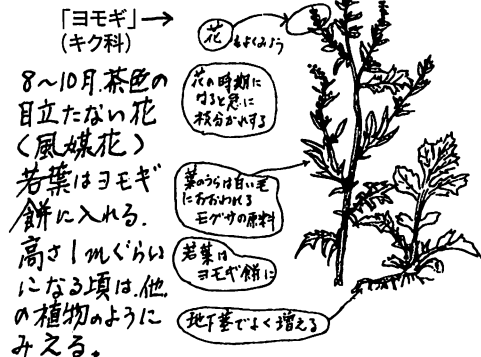 「ヨモギ」→
(キク科)
8〜10月.茶色の
目立たない花
(風媒花)
若葉はヨモギ
餅に入れる.
高さ1mぐらい
になる頃は.他
の植物のように
みえる。
花もよくみよう
花の時期に
なると急に
枝分かれする
葉のうらは白い毛
におおわれる
モグサの原料
若葉は
ヨモギ餅に
地下茎でよく増える